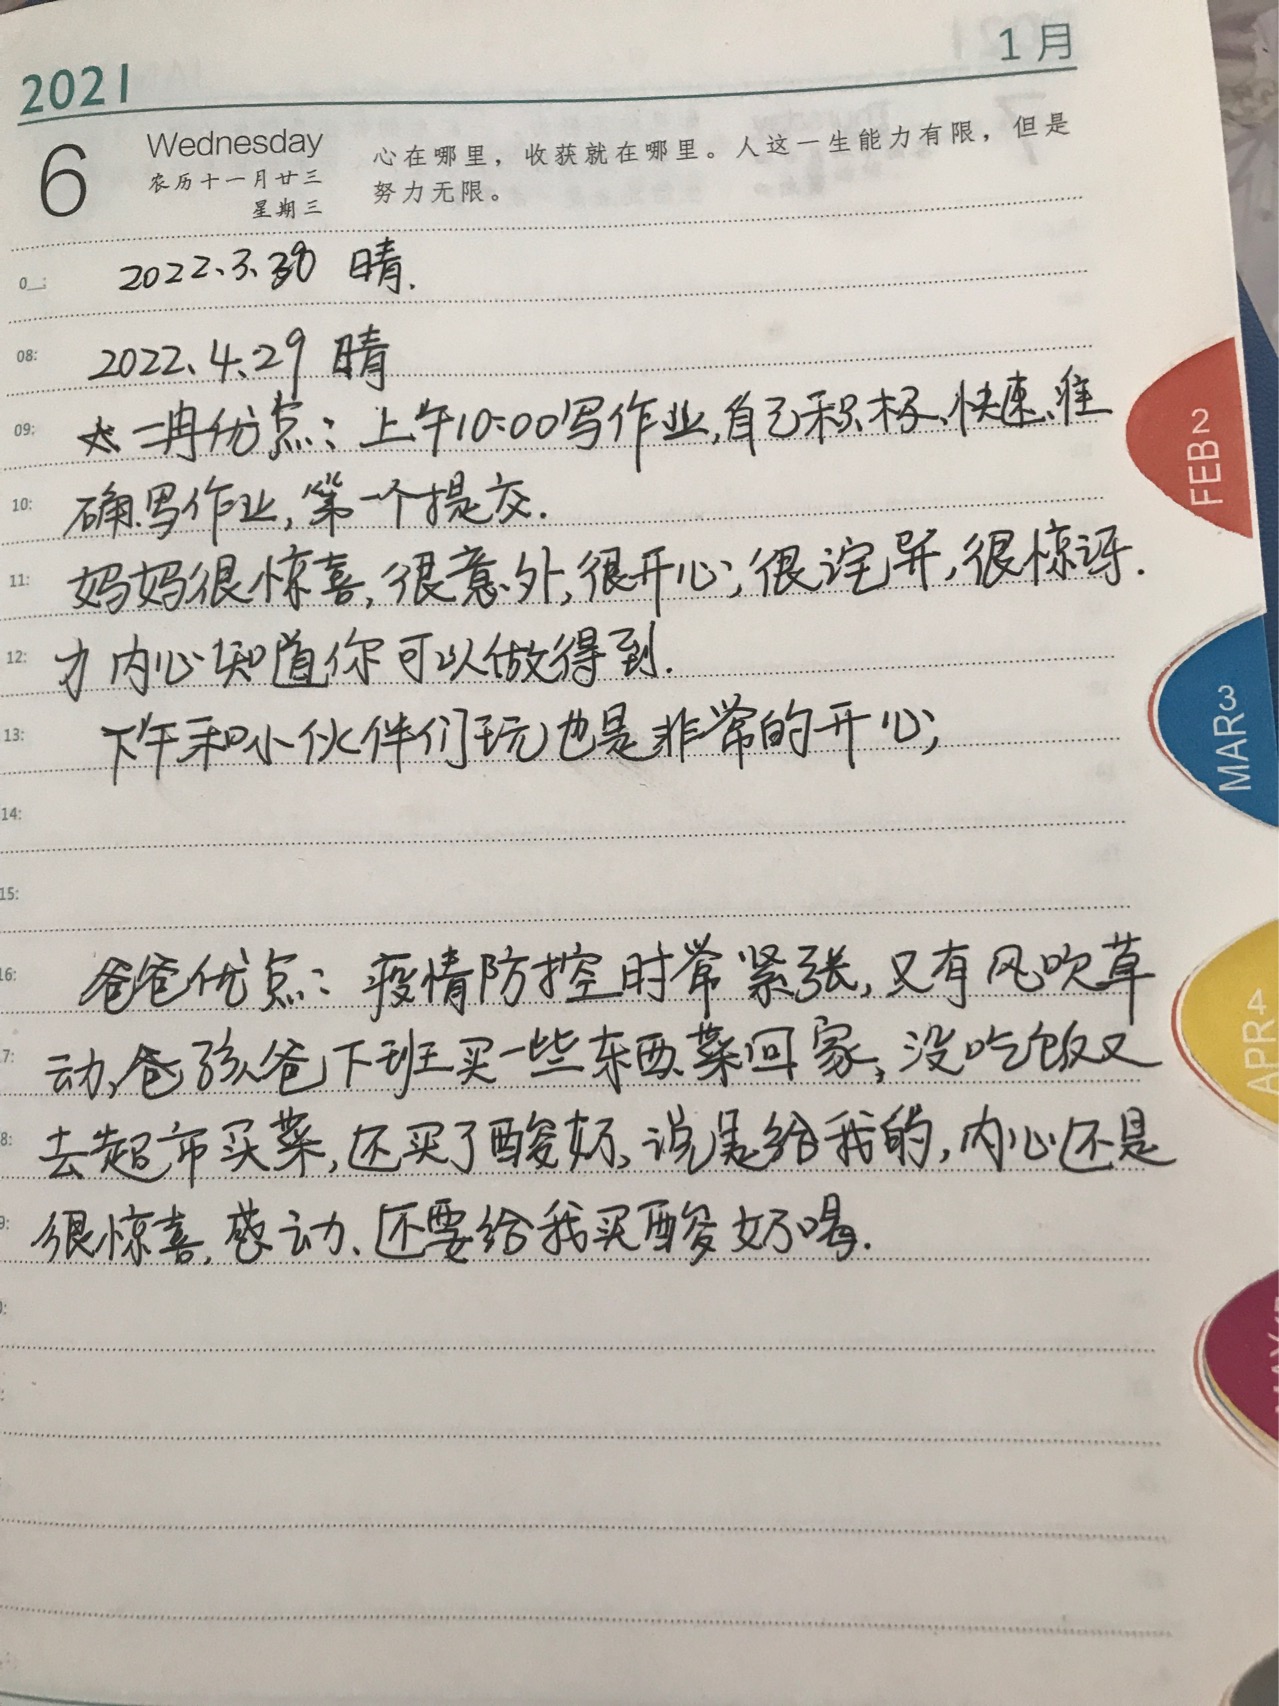 2021
1月
6
Wednesday
农历十一月廿三
星期三
心在哪里，收获就在哪里。人这一生能力有限，但是
努力无限。
2022.3.30 晴.
08:
2022.4.29 晴
09:
一冉优点：上午10:00写作业,自己积极、快速、准
10:
确写作业,第一个提交.
11:
妈妈很惊喜,很意外,很开心;很诧异,很惊讶.
12:
内心知道你可以做得到.
13:
下午和小伙伴们玩也是非常的开心;
14:
15:
16:
爸爸优点：疫情防控时常紧张,又有风吹草
7:
动,爸爸下班买一些东西、菜回家,没吃饭又
8:
去超市买菜,还买了酸奶,说是给我的,内心还是
9:
很惊喜,感动、还要给我买酸奶喝.
FEB 2
MAR 3
APR 4